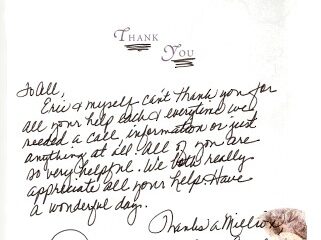 THANK
YOU
To All,
Eric & myself can't thank you for
all your help each & everytime we
needed a call, information or just
anything at ill. All of you are
so very helpful. We both really
appreciate all your help. Have
a wonderful day.
Thanks a Million